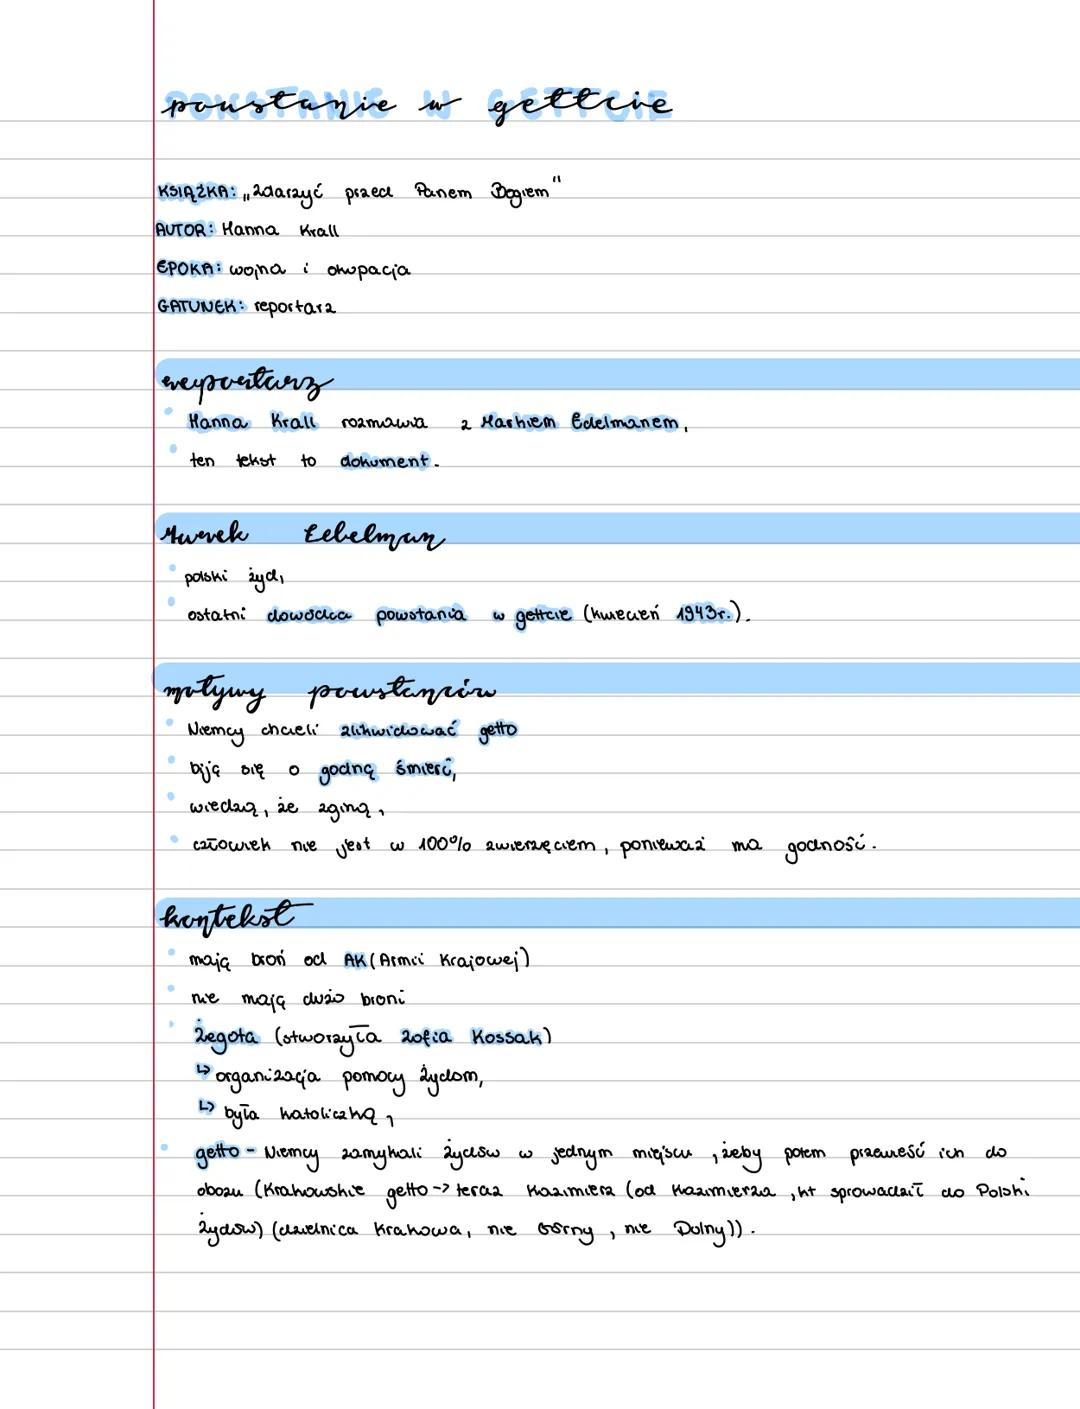 powstanie w gettcie
KSIĄŻKA: „Zdarzyć przed Panem Bogiem"
AUTOR: Hanna Krall
EPOKA: wojna i okupacja
GATUNEK: reportarz
reportarz
Hanna Krall rozmawia z Markiem Edelmanem,
ten tekst to dokument.
Marek Edelman
polski żyd,
ostatni dowódca powstania w gettcie (kwiecień 1943r.).
motywy powstańców
Niemcy chcieli zlikwidować getto
biją się o godną śmierć,
wiedzą, że zginą,
człowiek nie jest w 100% zwierzęciem, ponieważ ma godność.
kontekst
mają broń od AK (Armii Krajowej)
nie mają dużo broni
Żegota (stworzyła Zofia Kossak)
↳ organizacja pomocy żydom,
↳ była katoliczką,
getto - Niemcy zamykali żydów w jednym miejscu, żeby potem przenieść ich do
obozu (Krakowskie getto -> teraz Kazimierz (od Kazimierza, kt sprowadził do Polski
żydów) (dzielnica Krakowa, nie Górny, nie Dolny)).